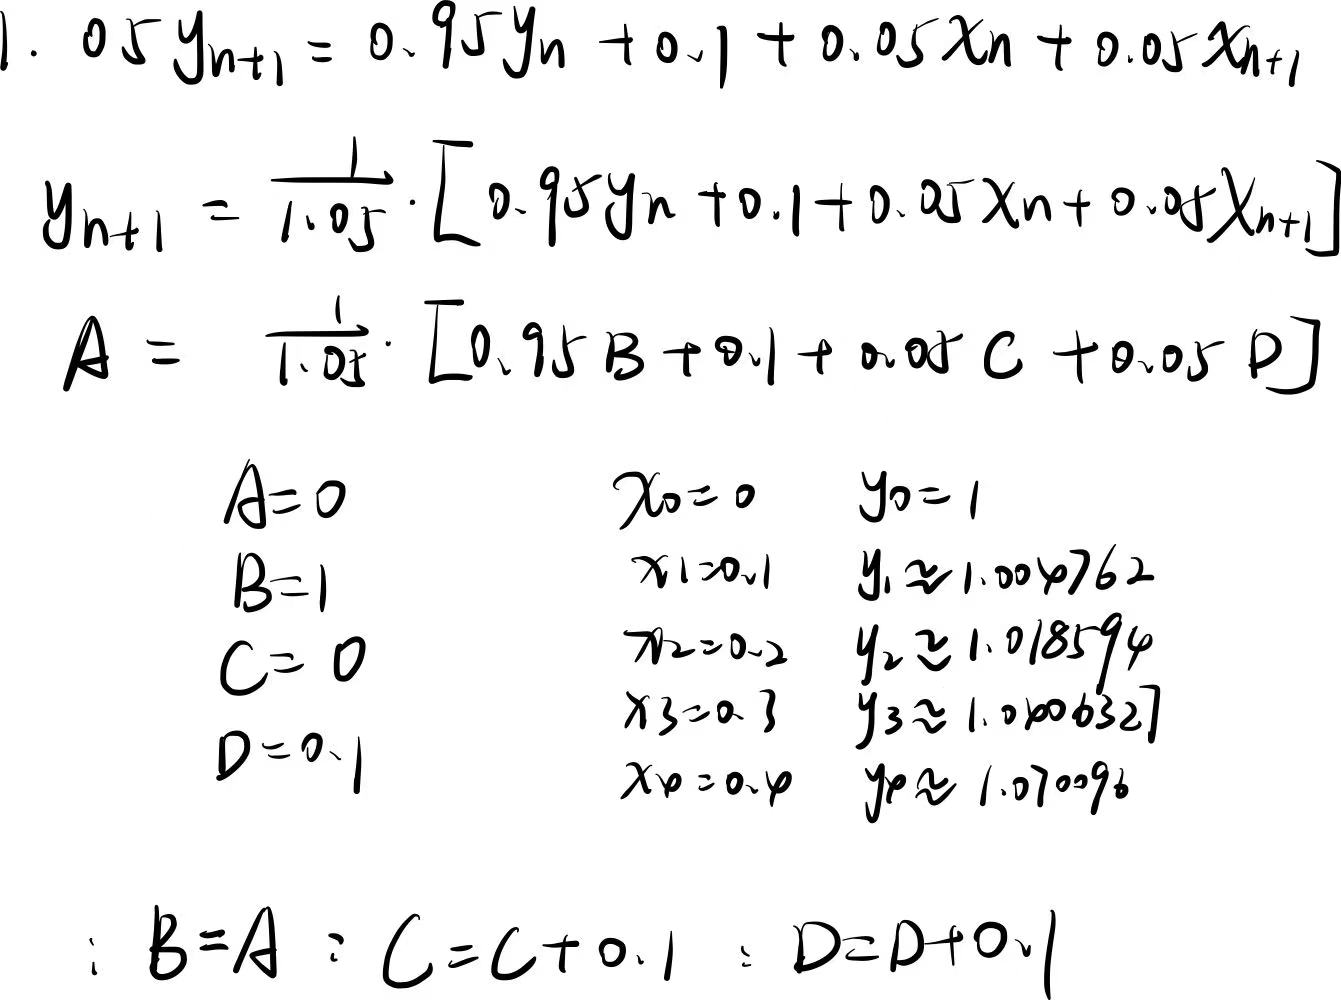 1.05y_{n+1} = 0.95y_n + 0.1 + 0.05x_n + 0.05x_{n+1}
y_{n+1} = \frac{1}{1.05} · [0.95y_n + 0.1 + 0.05x_n + 0.05x_{n+1}]
A = \frac{1}{1.05} · [0.95B + 0.1 + 0.05C + 0.05D]
A=0 x_0=0 y_0=1
B=1 x_1=0.1 y_1≈1.004762
C=0 x_2=0.2 y_2≈1.018594
x_3=0.3 y_3≈1.0406327
D=0.1 x_4=0.4 y_4≈1.070096
: B=A : C=C+0.1 : D=D+0.1